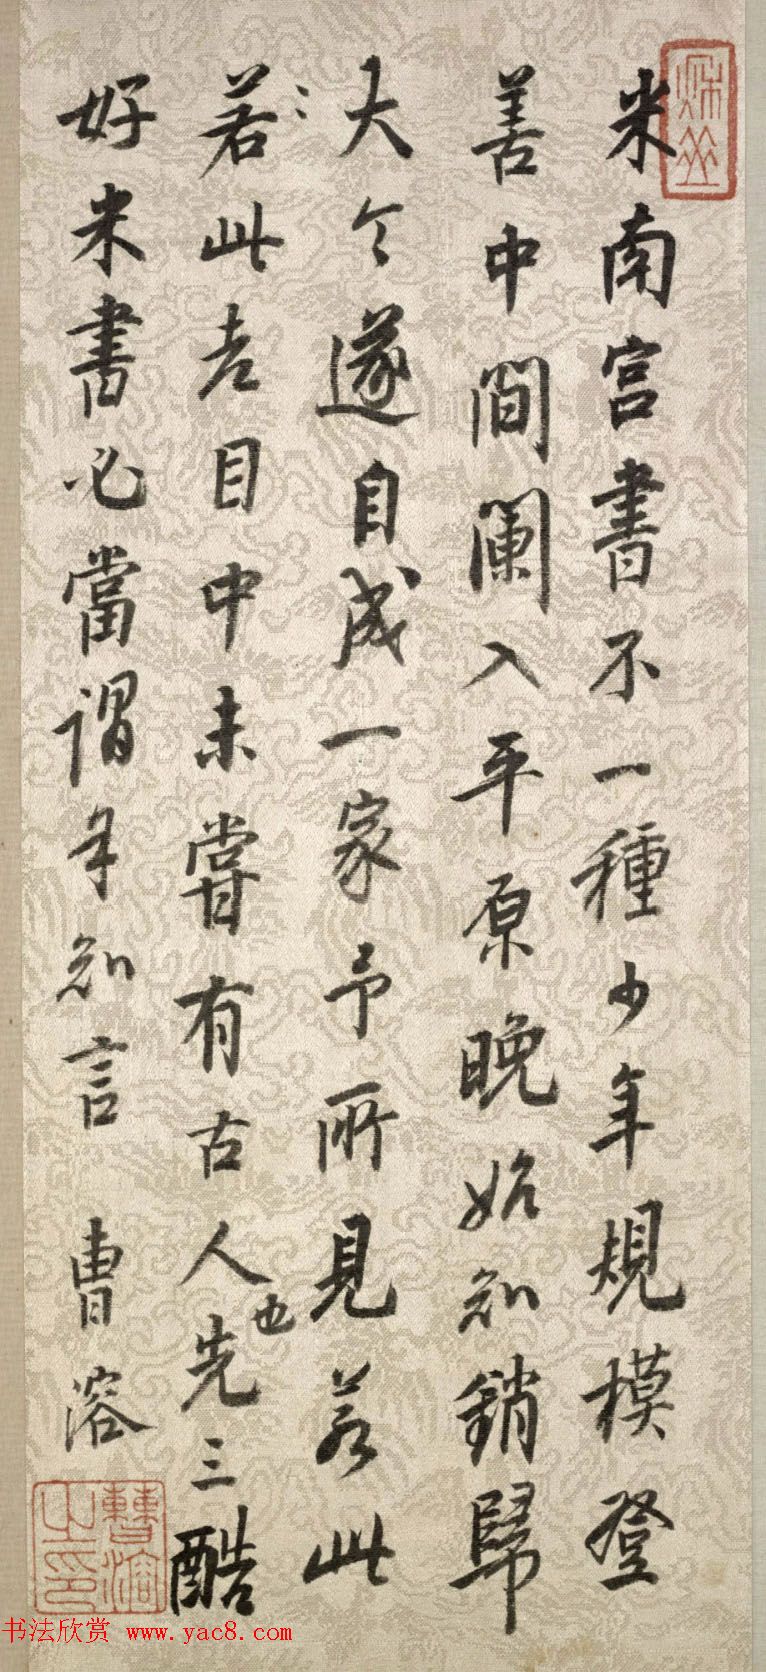 米南宫書不一種少年規模登
善中間闌入平原晚始知銷歸
大令遂自成一家予所見若此
若此老目中未嘗有古人也先三酷
好米書必當謂予知言 曹溶
曹溶之印
书法欣赏 www.yac8.com